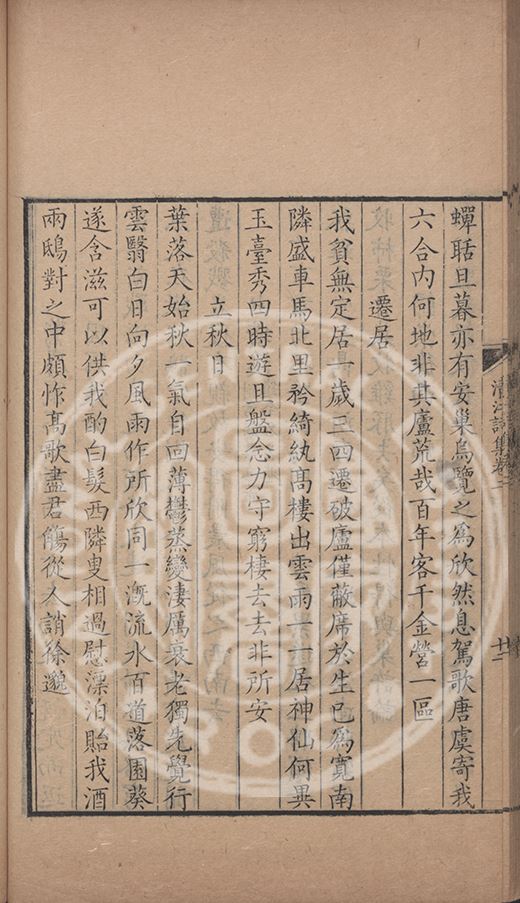 蟬聒旦暮亦有安巢烏覽之爲欣然息駕歌唐虞寄我
六合內何地非其廬荒哉百年客千金營一區
遷居
我貧無定居一歲三四遷破廬僅蔽席於生已爲寬南
隣盛車馬北里矜綺紈髙樓出雲雨一一居神仙何異
玉臺秀四時遊且盤念力守窮棲去去非所安
立秋日
葉落天始秋一氣自回薄鬱蒸變淒厲衰老獨先覺行
雲翳白日向夕風雨作所欣同一漑流水百道落園葵
遂含滋可以供我酌白髮西隣叟相過慰漂泊貽我酒
兩鴟對之中頗怍髙歌盡君觴從人誚徐邈
清江詩集卷二
十二